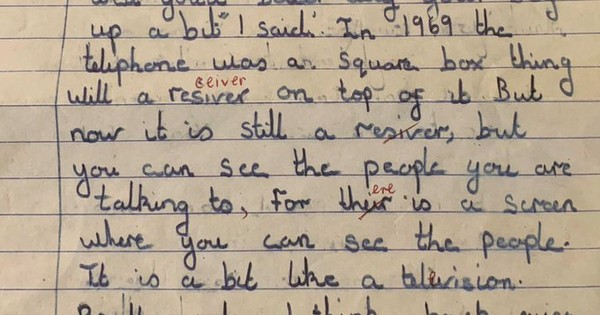 up a bit" I said. In 1969 the
telephone was a square box thing
ceiver
will a resiver on top of it But
now it is still a resiver, but
you can see the people you are
ere
talking to, for their is a screen
where you can see the people.
It is a bit like a television.